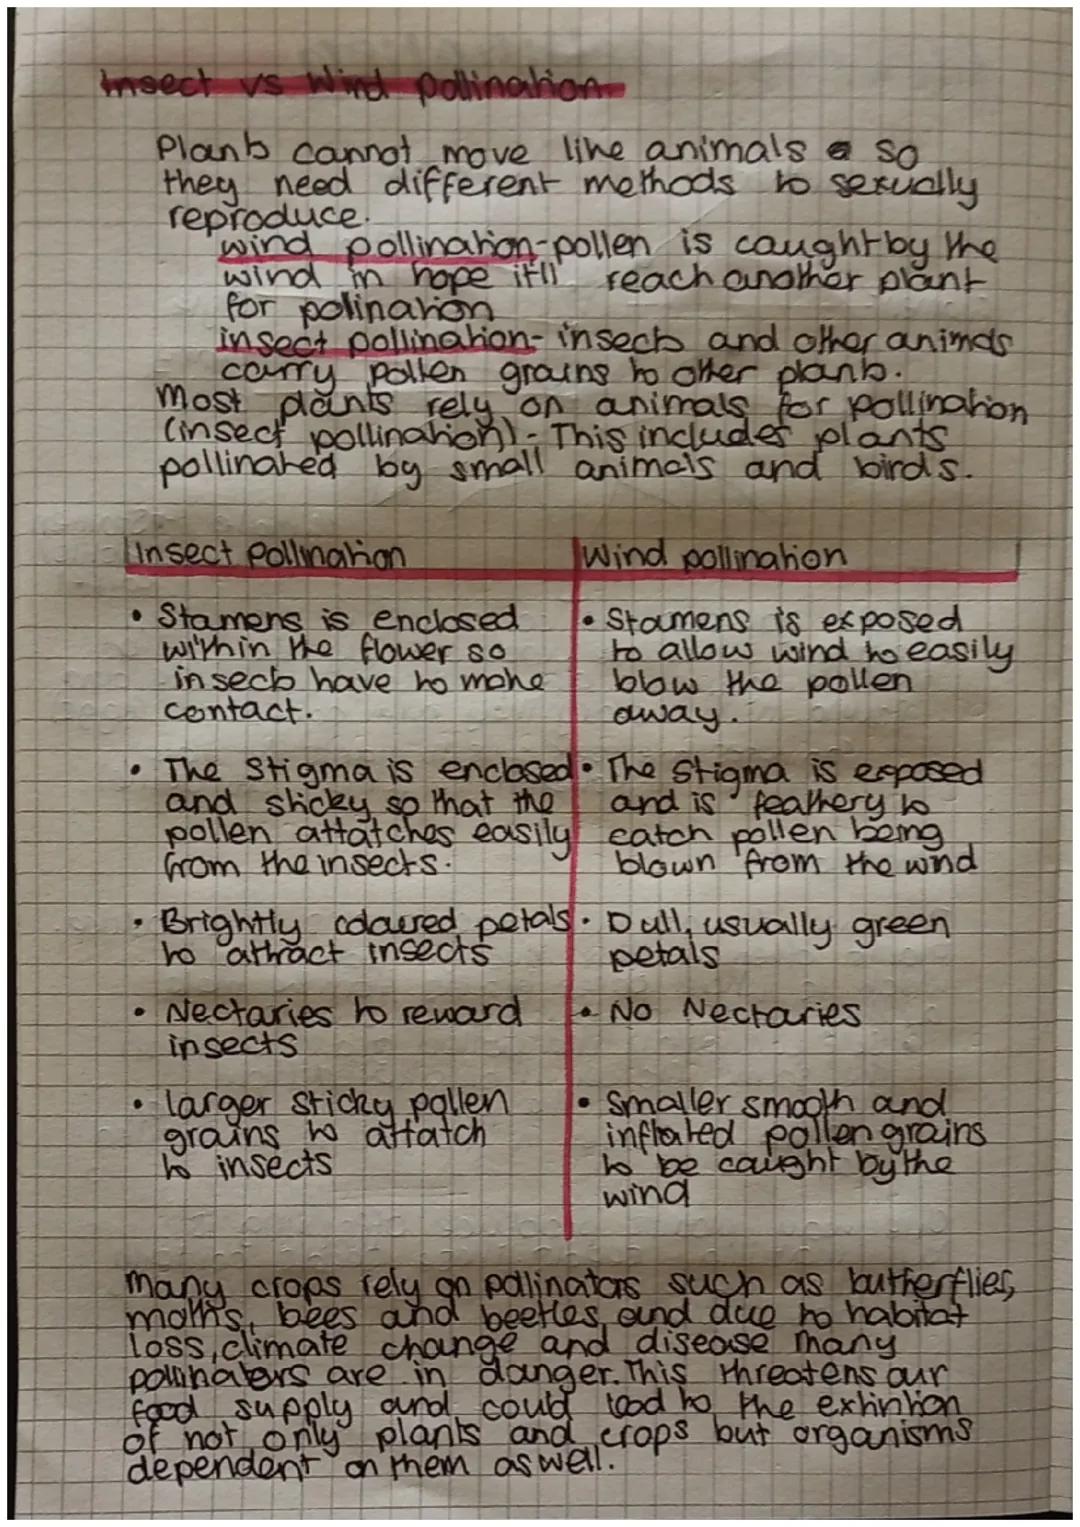 Insect vs Wind pollination
Plants cannot move like animals so
they need different methods to sexually
reproduce.
wind pollination-pollen is caught by the
wind in hope it'll reach another plant
for polination
insect pollination- insects and other animals
carry pollen grains to other plants.
Most plants rely on animals for pollination
(insect pollination)- This includes plants
pollinated by small animals and birds.
Insect Pollination
Wind pollination
• Stamens is enclosed
within the flower so
insects have to make
contact.
• Stamens is exposed
to allow wind to easily
blow the pollen
away.
• The Stigma is enclosed
and sticky so that the
pollen attatches easily
from the insects.
• The Stigma is exposed
and is feathery to
catch pollen being
blown from the wind
• Brightly coloured petals
to attract insects
• Dull, usually green
petals
• Nectaries to reward
insects
• No Nectaries
• larger sticky pollen
grains to attatch
to insects
• Smaller smooth and
inflated pollen grains
to be caught by the
wind
Many crops rely on pollinators such as butterflies,
moths, bees and beetles, and due to habitat
loss, climate change and disease many
pollinators are in danger. This threatens our
food supply and could lead to the extinction
of not only plants and crops but organisms
dependent on them as well.